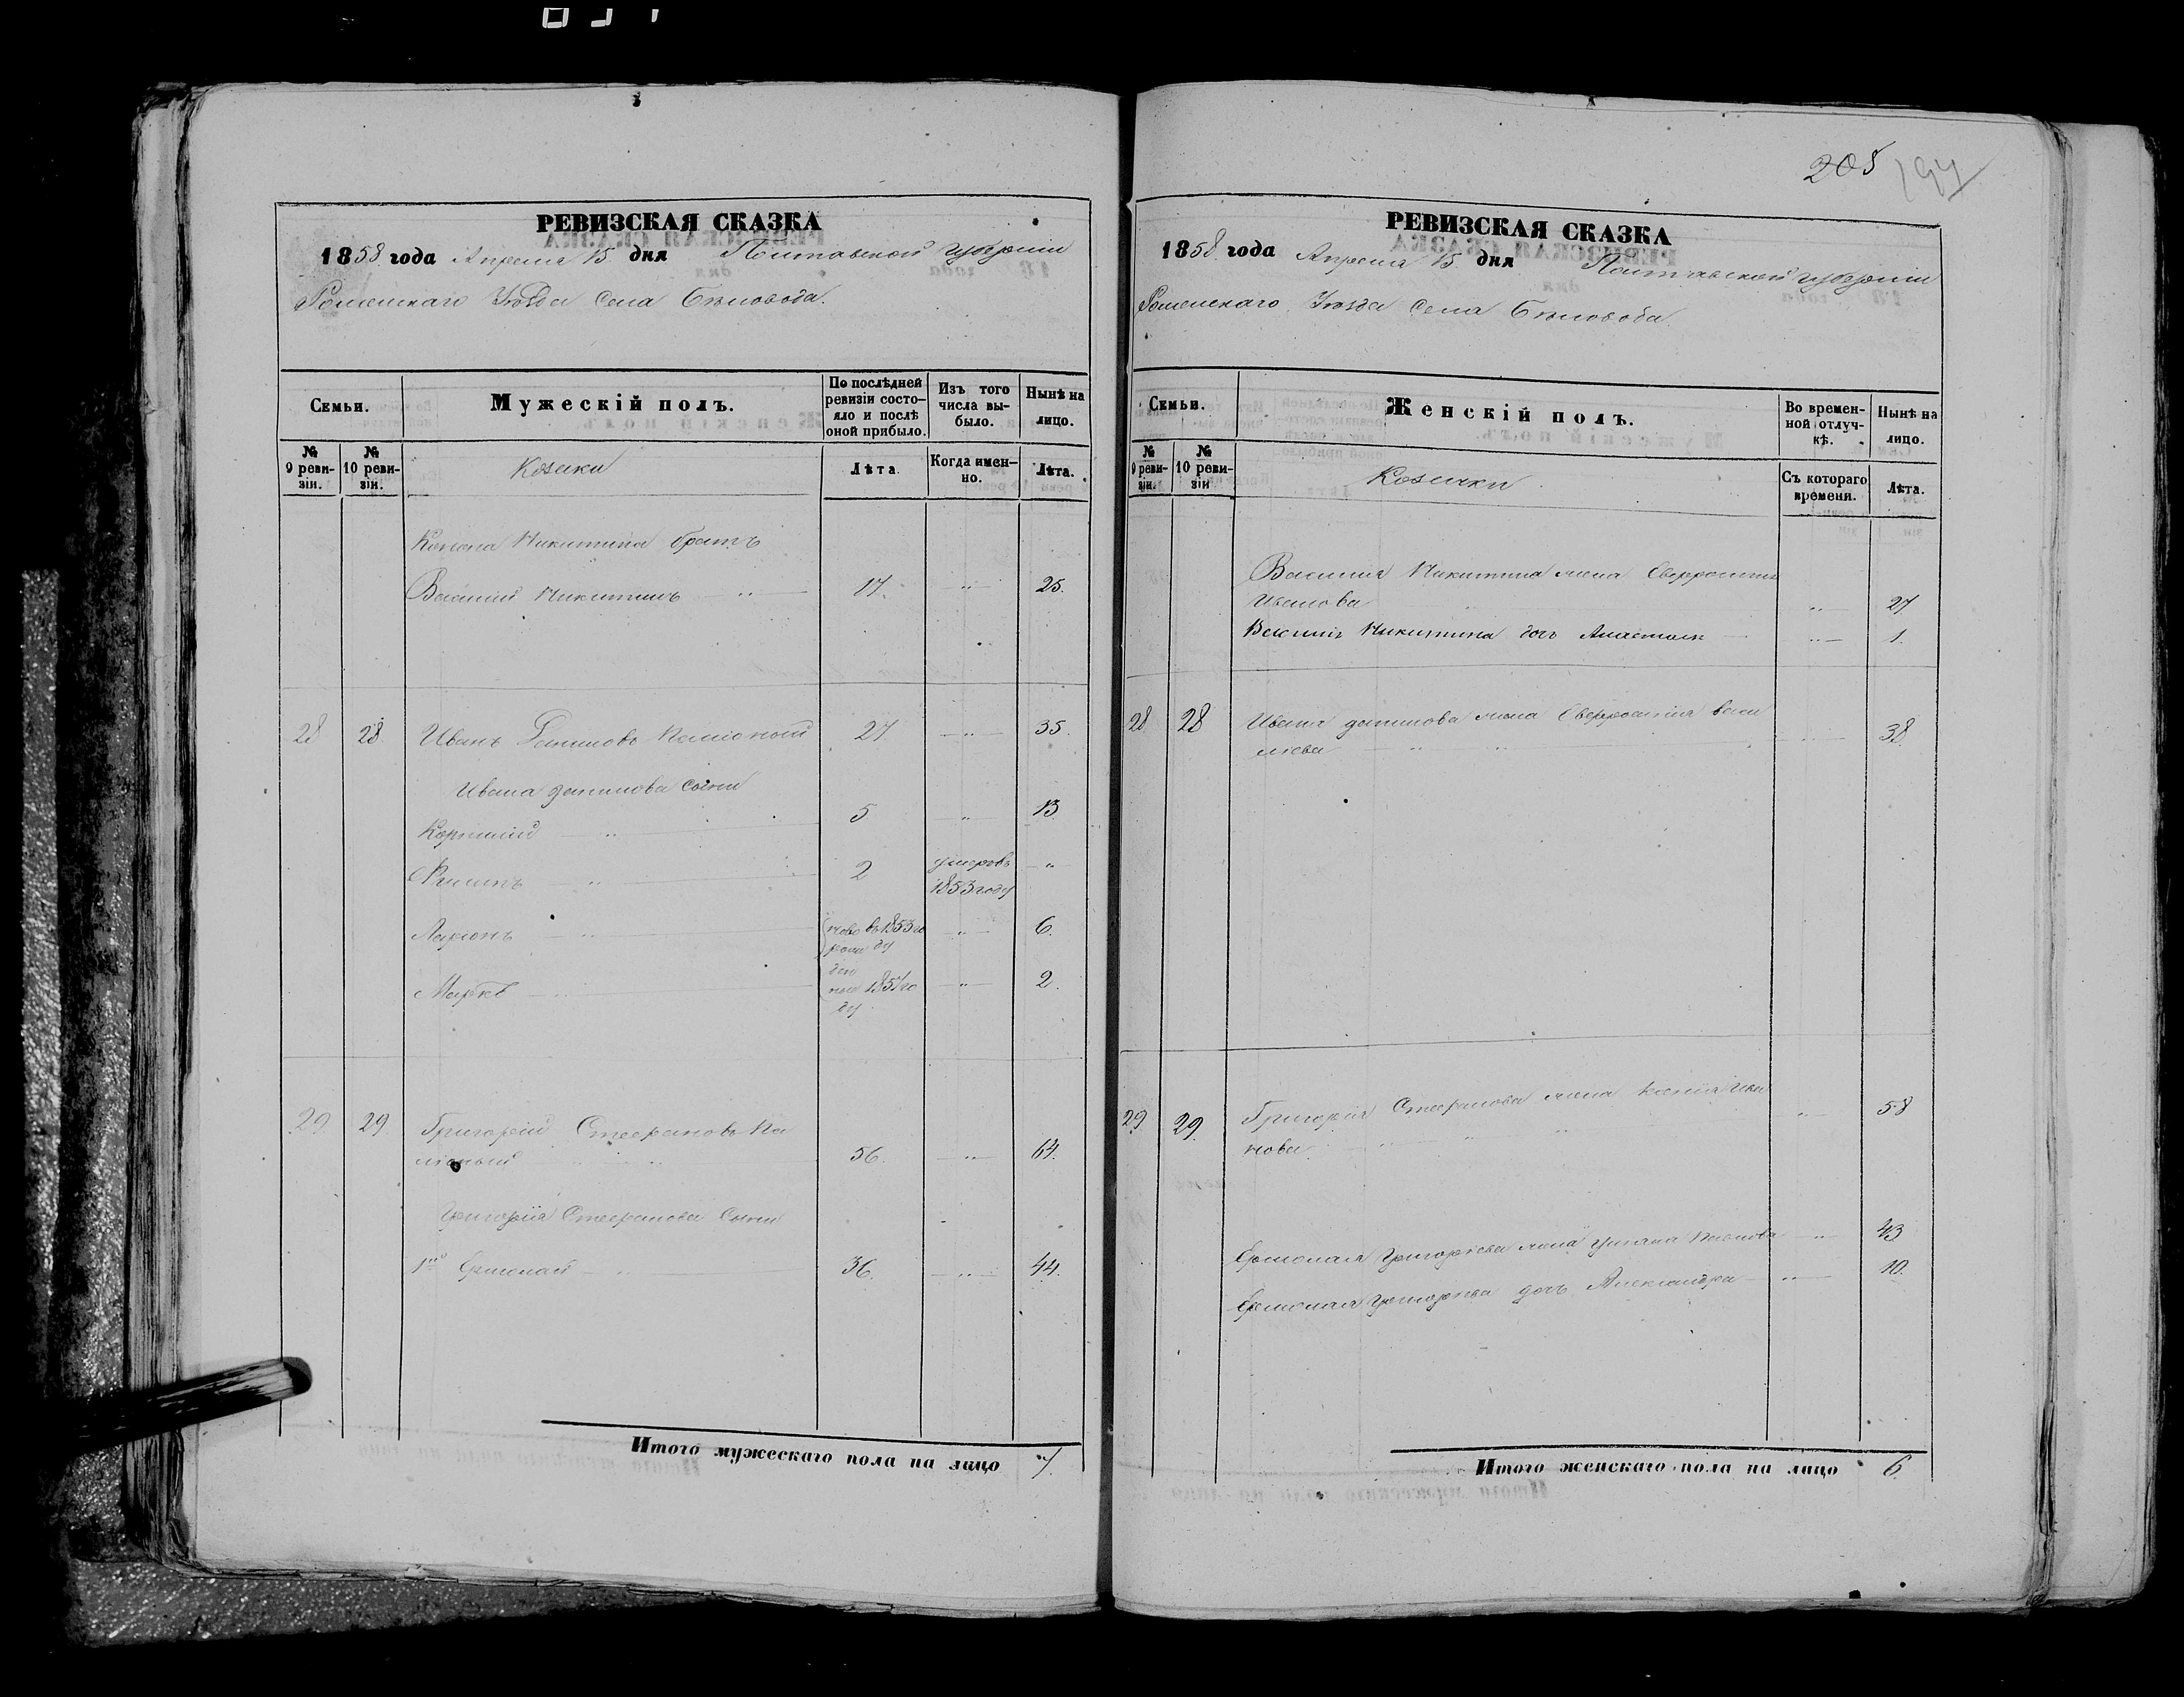 205 194
РЕВИЗСКАЯ СКАЗКА
1858 года Апреля 15 дня Полтавской губернии
Роменскаго Уѣзда Села Бѣловода.
Семьи.
Мужескій полъ.
По послѣдней ревизіи состояло и послѣ оной прибыло.
Изъ того числа выбыло.
Нынѣ на лицо.
№ 9 ревизіи.
№ 10 ревизіи.
Козаки
Лѣта.
Когда именно.
Лѣта.
Никитина братъ
Василий Никитинъ 17. 25.
28 28 Иванъ Даниловъ 27 35.
Ивана Данилова сыни
Корнилий 5 13
Филипъ 2 умеръ въ 1853 году
Ларионъ ново рожденные въ 1853 году 6.
Марко 1857 году 2.
29 29 Григорий Стефановъ
56. 64.
Григория Стефанова Сыни
1й Ермолай 36. 44.
Итого мужескаго пола на лицо 7.
РЕВИЗСКАЯ СКАЗКА
1858 года Апреля 15 дня Полтавской губернии
Роменскаго Уѣзда Села Бѣловода.
Семьи.
Женскій полъ.
Во временной отлучкѣ.
Нынѣ на лицо.
№ 9 ревизіи.
№ 10 ревизіи
Козачки
Съ котораго времени.
Лѣта.
Василия Никитина жена Евфросиния
Иванова 27
Василия Никитина дочь Анастасия 1.
28 28 Ивана Данилова жена Евфросиния Васи
лиева 38
29 29 Григория Стефанова жена Ксения Ива
нова 58
Ермолая Григориева жена Улияна Павлова 43
Ермолая Григориева дочь Александра 10.
Итого женскаго пола на лицо 6.